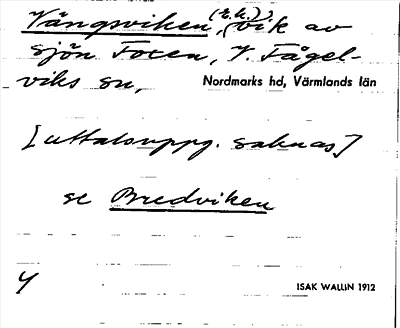 Vängsviken, (e.k.) vik av
sjön Foxen, V. Fågel-
viks sn, Nordmarks hd, Värmlands län
[uttalsuppg. saknas]
se Bredviken
ISAK WALLIN 1912